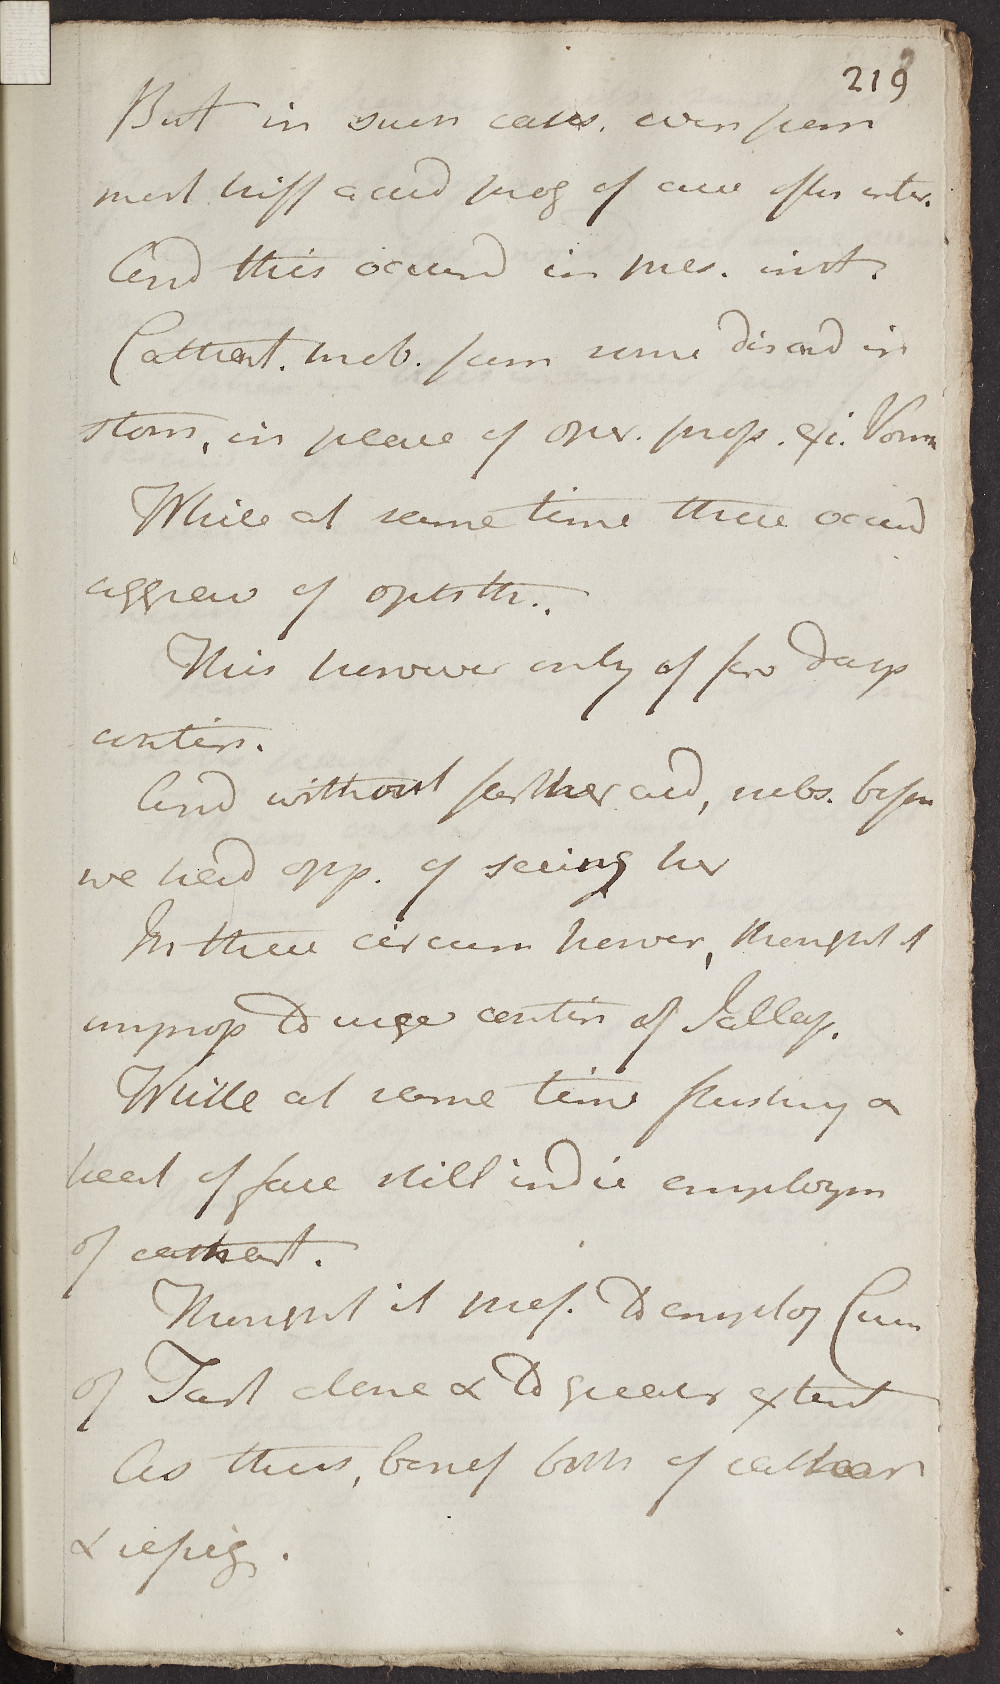 219
But in such cases. even from
most triff accid prog of cure often inter.
And this occurd in pres. inst.
Cathart. meb. from some disord in
stom, in place of oper. prop. exi. Vom
While at same time there occurd
aggrav of opisth..
This however only of few Days
contin.
And without farther aid, subs. befor
we had opp. of seeing her
In these circum hower, thought it
unprop to urge contin of Jallap.
While at same time flushing &
heat of face still indic employm
of cathart.
Thought it pref. to employ Crem
of Tart alone & to greater extent
As thus, benef both of cathar
& refrig.